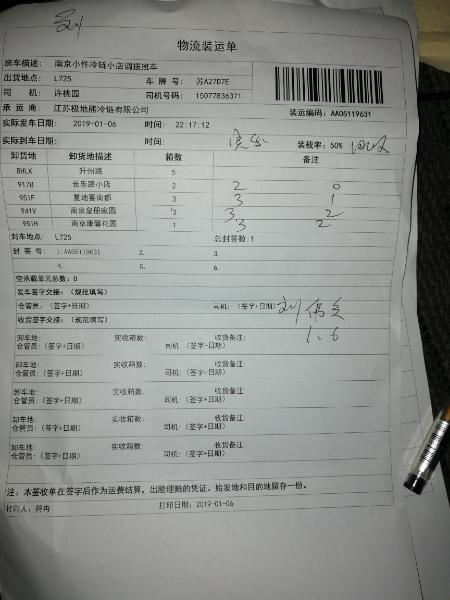 刘
物流装运单
班车描述: 南京小件冷链小店调拨班车
出货地点: L725 车 牌 号: 苏A27D7E
司 机: 许桃园 司机号码: 15077836371
承 运 商: 江苏极地熊冷链有限公司 装运编码: AA05119631
实际发车日期: 2019-01-06 时间: 22:17:12
实际到车日期: 时间: 装载率: 50%
卸货地 卸货地描述 箱数 备注
8HLK 升州路 5
917U 长乐路小店 2 2 0
951F 复地宴南都 3 3 1
941V 南京皇册家园 3 3 2
951H 南京康馨花园 1 3 2
封车地点: L725 总封签数:1
封 签 号: 1.AA05119631 2. 3.
4. 5. 6.
空承载单元总数: 0
发车签字交接: (规范填写)
仓管员: (签字+日期) 司机: (签字+日期) 刘
收货签字交接: (规范填写) 1.6
卸车地: 实收箱数: 收货备注:
仓管员: (签字+日期) 司机: (签字+日期)
卸车地: 实收箱数: 收货备注:
仓管员: (签字+日期) 司机: (签字+日期)
卸车地: 实收箱数: 收货备注:
仓管员: (签字+日期) 司机: (签字+日期)
卸车地: 实收箱数: 收货备注:
仓管员: (签字+日期) 司机: (签字+日期)
卸车地: 实收箱数: 收货备注:
仓管员: (签字+日期) 司机: (签字+日期)
注: 本签收单在签字后作为运费结算, 出险理赔的凭证。始发地和目的地留存一份。
打印人: 符冉 打印日期: 2019-01-06